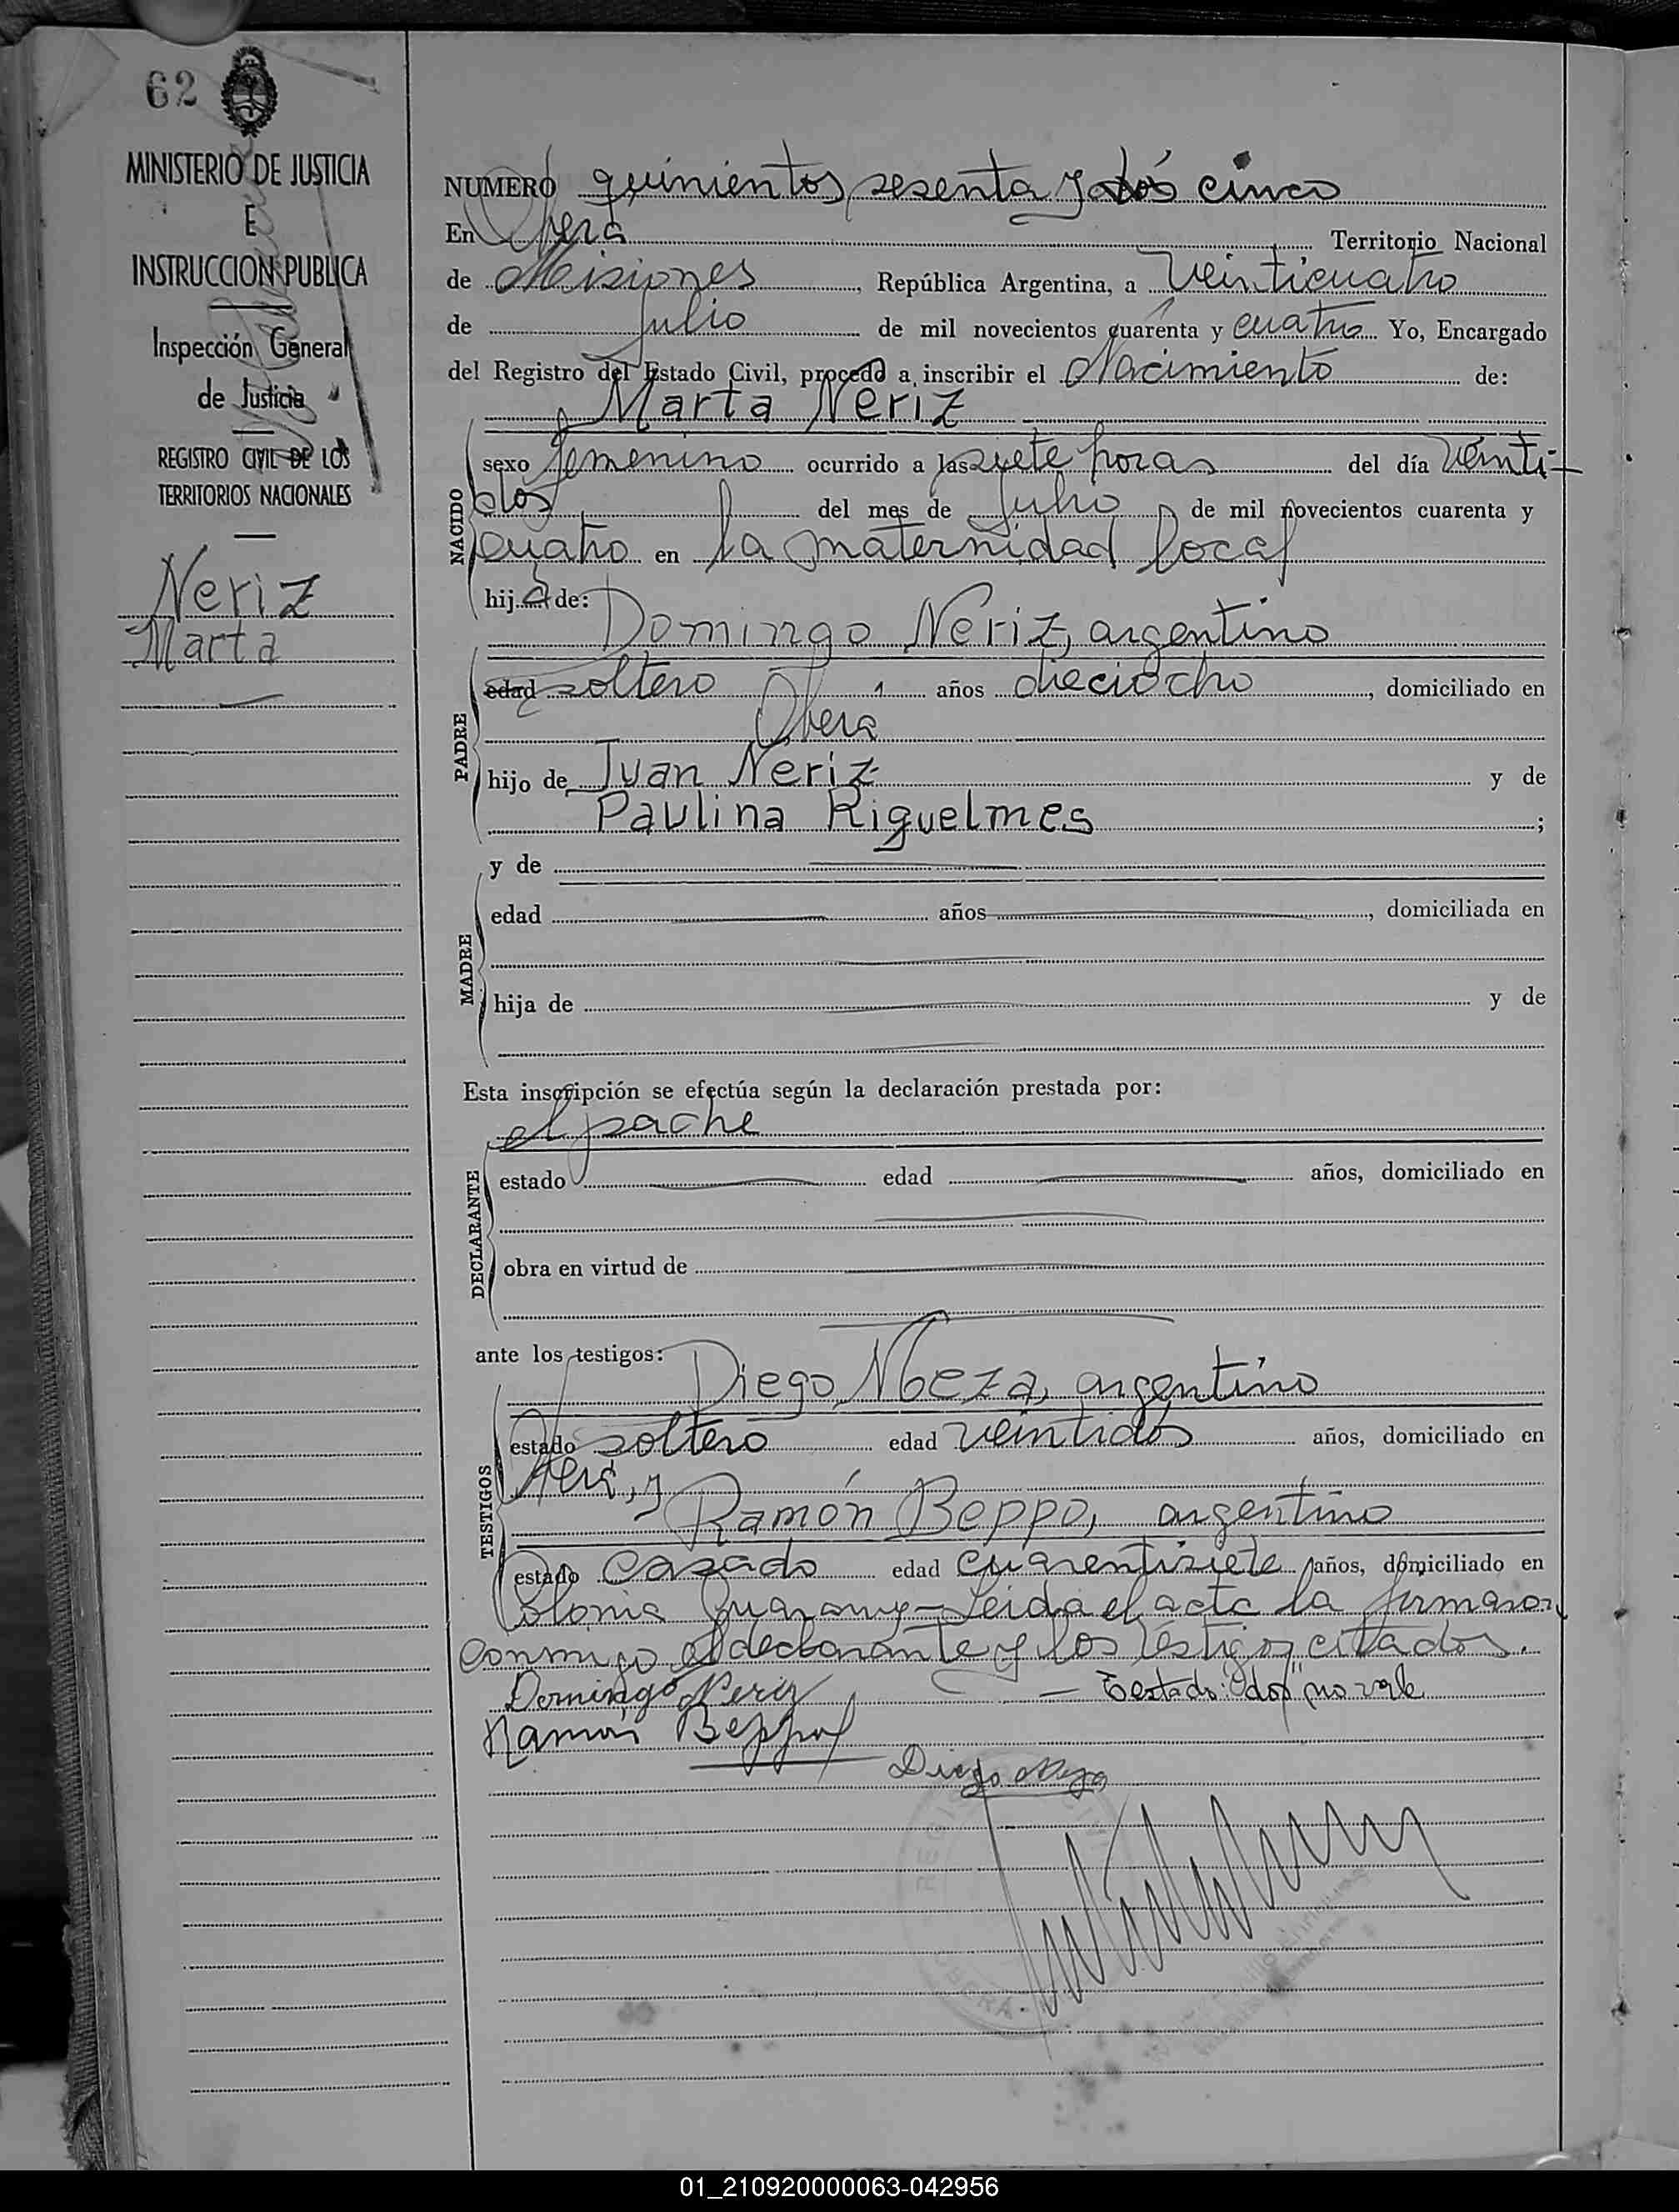 62
MINISTERIO DE JUSTICIA
E
INSTRUCCION PUBLICA
Inspección General
de Justicia
REGISTRO CIVIL DE LOS
TERRITORIOS NACIONALES
Neriz
Marta
NUMERO quinientos sesenta y dos cinco
En Oberá Territorio Nacional
de Misiones, República Argentina, a veinticuatro
de Julio de mil novecientos cuarenta y cuatro Yo, Encargado
del Registro del Estado Civil, procedo a inscribir el Nacimiento de:
Marta Neriz
NACIDO
sexo femenino ocurrido a las siete horas del día veinti-
dós del mes de Julio de mil novecientos cuarenta y
cuatro en la maternidad local
hija de:
Domingo Neriz, argentino
PADRE
edad soltero años dieciocho, domiciliado en
Oberá
hijo de Juan Neriz y de
Paulina Riquelmes;
y de
MADRE
edad años, domiciliada en
hija de y de
Esta inscripción se efectúa según la declaración prestada por:
el padre
DECLARANTE
estado edad años, domiciliado en
obra en virtud de
ante los testigos:
Diego Meza, argentino
TESTIGOS
estado soltero edad veintidós años, domiciliado en
Oberá, y
Ramón Beppo, argentino
estado casado edad cuarentisiete años, domiciliado en
Colonia Guarany - Leida el acta la firmaron
conmigo el declarante y los testigos citados.
Domingo Neriz — Testado: dos no vale
Ramon Beppo
Diego Meza
01_210920000063-042956